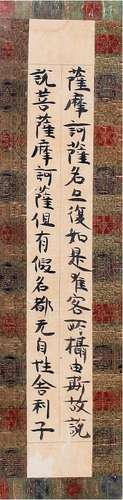 薩摩訶薩名亦復如是唯客所攝由斯故說
諸菩薩摩訶薩但有假名都无自性舍利子